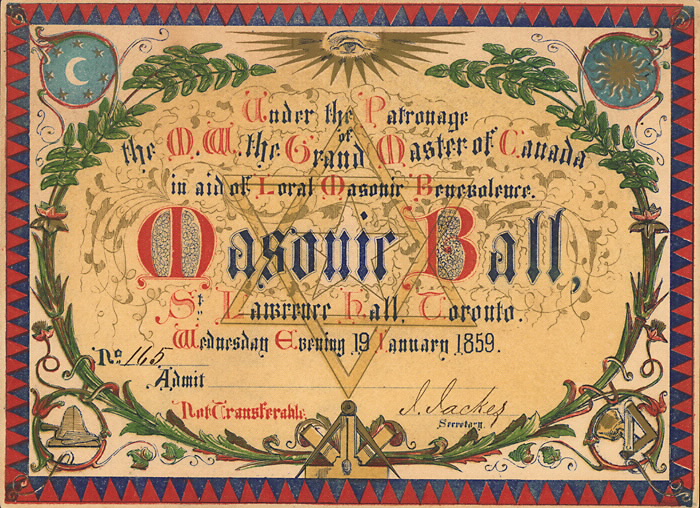 Under the Patronage
of
the M.W. the Grand Master of Canada
in aid of Local Masonic Benevolence.
Masonic Ball,
St. Lawrence Hall, Toronto.
Wednesday Evening 19 January 1859.
No. 165
Admit
Not Transferable.
Secretary.